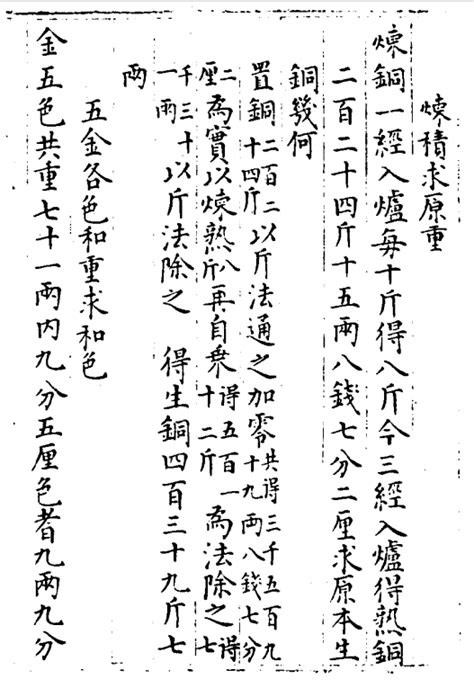 煉積求原重
煉銅一經入爐每十斤得八斤今三經入爐得熟銅
二百二十四斤十五兩八錢七分二厘求原本生
銅幾何
置銅二百二十四斤以斤法通之加零共得三千五百九十九兩八錢七分
二厘為實以煉熟八斤再自乘得五百一十二斤為法除之得七
千三十一兩以斤法除之 得生銅四百三十九斤七
兩
五金各色和重求和色
金五色共重七十一兩內九分五厘色者九兩九分